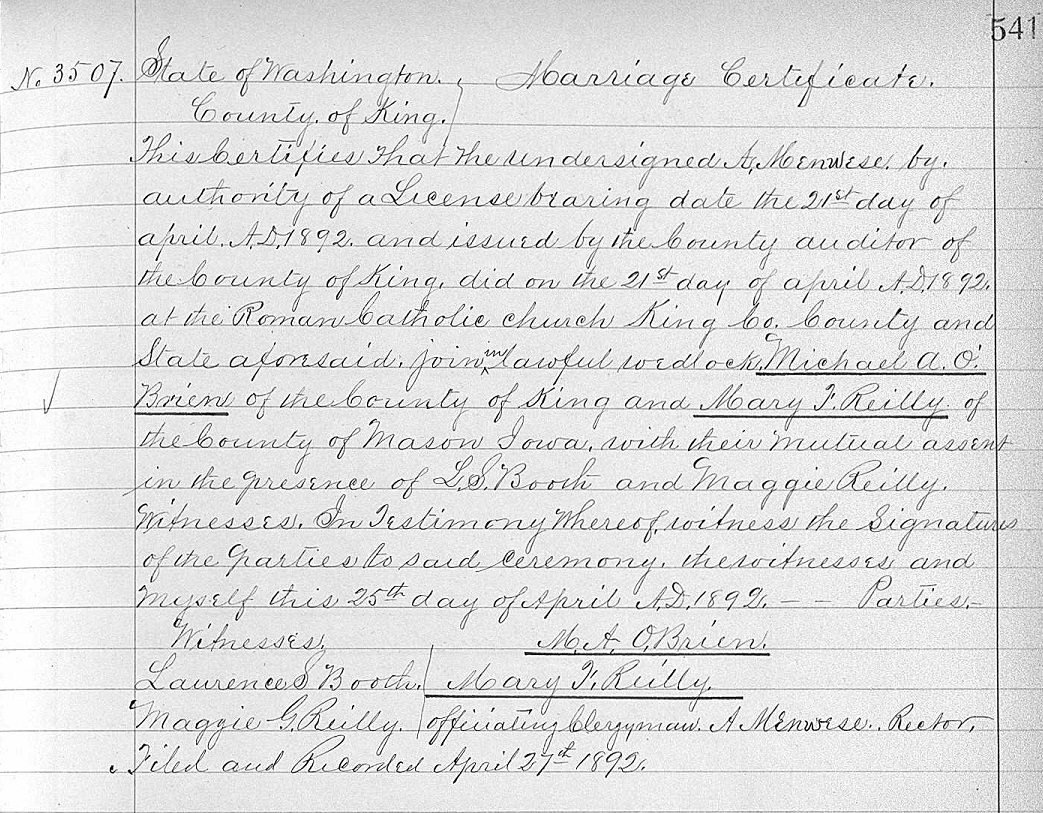 541
No. 3507. State of Washington. Marriage Certificate.
County of King.
This Certifies that the undersigned A. Menwese. by.
authority of a License bearing date the 21st day of
april. A.D. 1892. and issued by the County auditor of
the County of King. did on the 21st day of april A.D. 1892.
at the Roman Catholic church King Co. County and
State aforesaid. join in lawful wedlock. Michael A. O'
Brien of the County of King and Mary F. Reilly of
the County of Mason Iowa. with their mutual assent
in the presence of L.S. Booth and Maggie Reilly.
Witnesses. In Testimony Whereof, witness the Signatures
of the parties to said ceremony. the witnesses and
Myself this 25th day of April A.D. 1892. — — Parties. —
Witnesses. M. A. O'Brien.
Laurence S Booth. Mary F. Reilly.
Maggie G. Reilly. officiating Clergyman. A Menwese. Rector.
Filed and Recorded April 27st 1892.